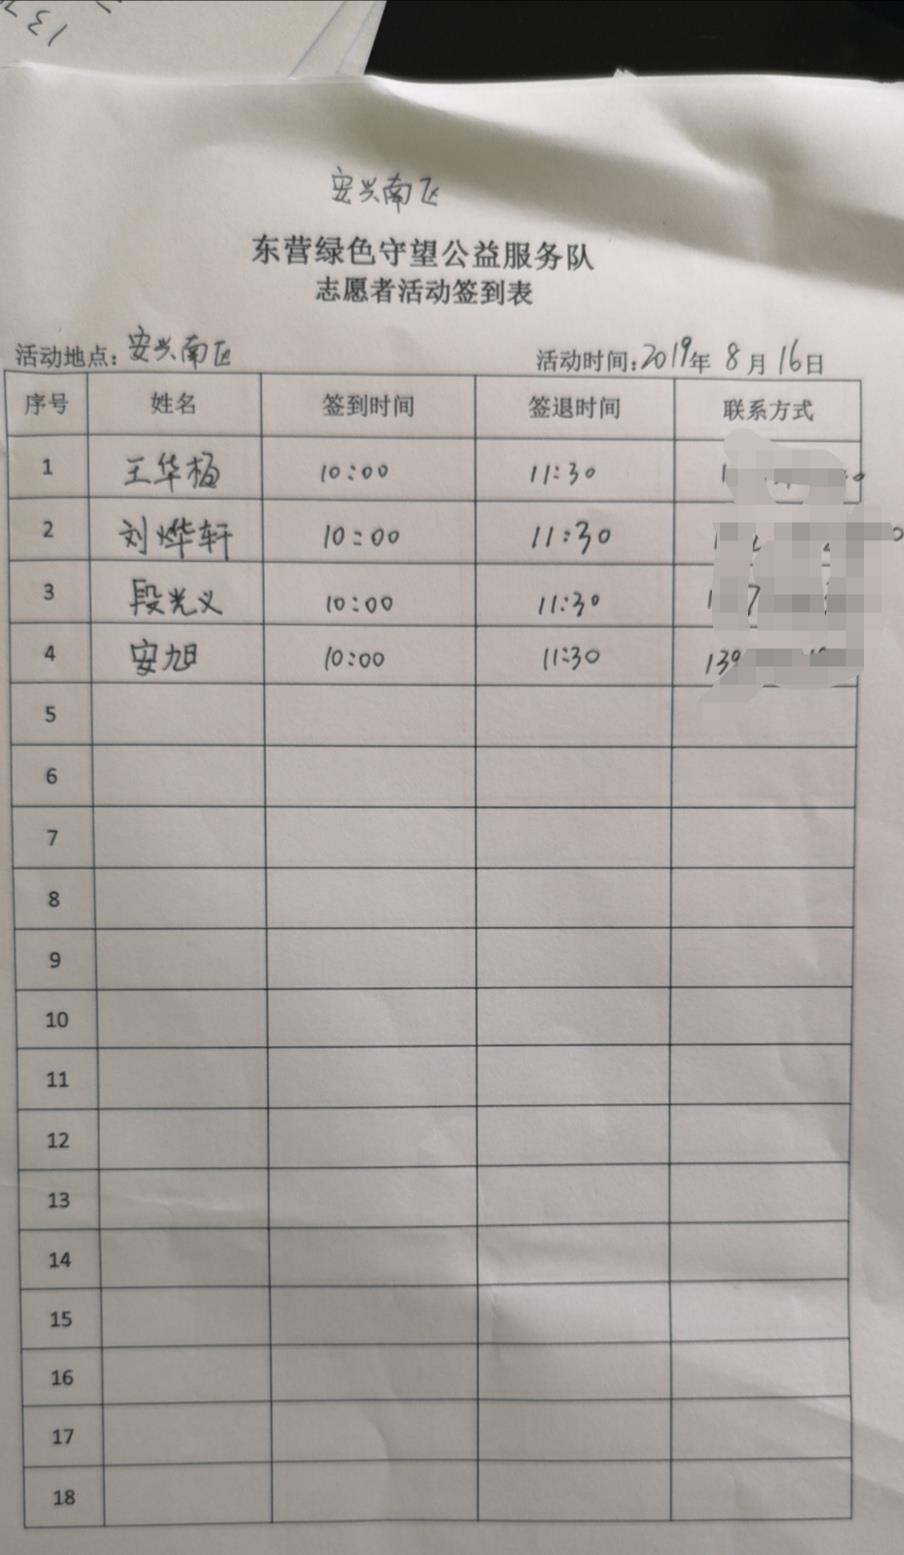 安兴南区
东营绿色守望公益服务队
志愿者活动签到表
活动地点：安兴南区 活动时间：2019年 8月16日
序号 姓名 签到时间 签退时间 联系方式
1 王华杨 10:00 11:30
2 刘烨轩 10:00 11:30
3 段光义 10:00 11:30
4 安旭 10:00 11:30 139
5
6
7
8
9
10
11
12
13
14
15
16
17
18